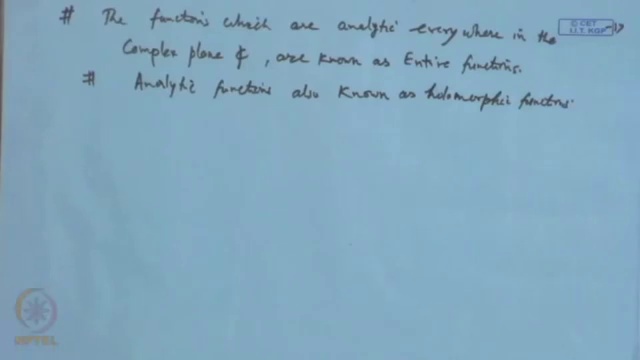 # The functions which are analytic every where in the
© CET
I.I.T. KGP
Complex plane ₵, are known as Entire functions.
# Analytic functions also known as holomorphic functions
NPTEL